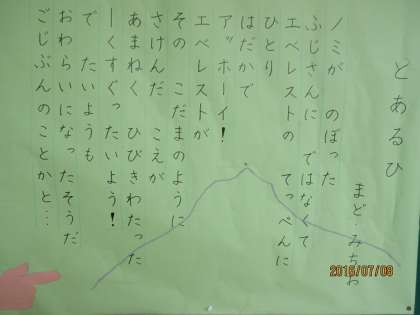 とあるひ
まど・みちお
ノミが のぼった
ふじさんに ではなくて
エベレストの てっぺんに
ひとり
はだかで
ア〝ホーイ!
エベレストが
その こだまのように
さけんだ こえが
あまねく ひびきわたった
ーくすぐったいよう!
で たいようも
おわらいになったそうだ
ごじぶんのことかと…
2016/07/09